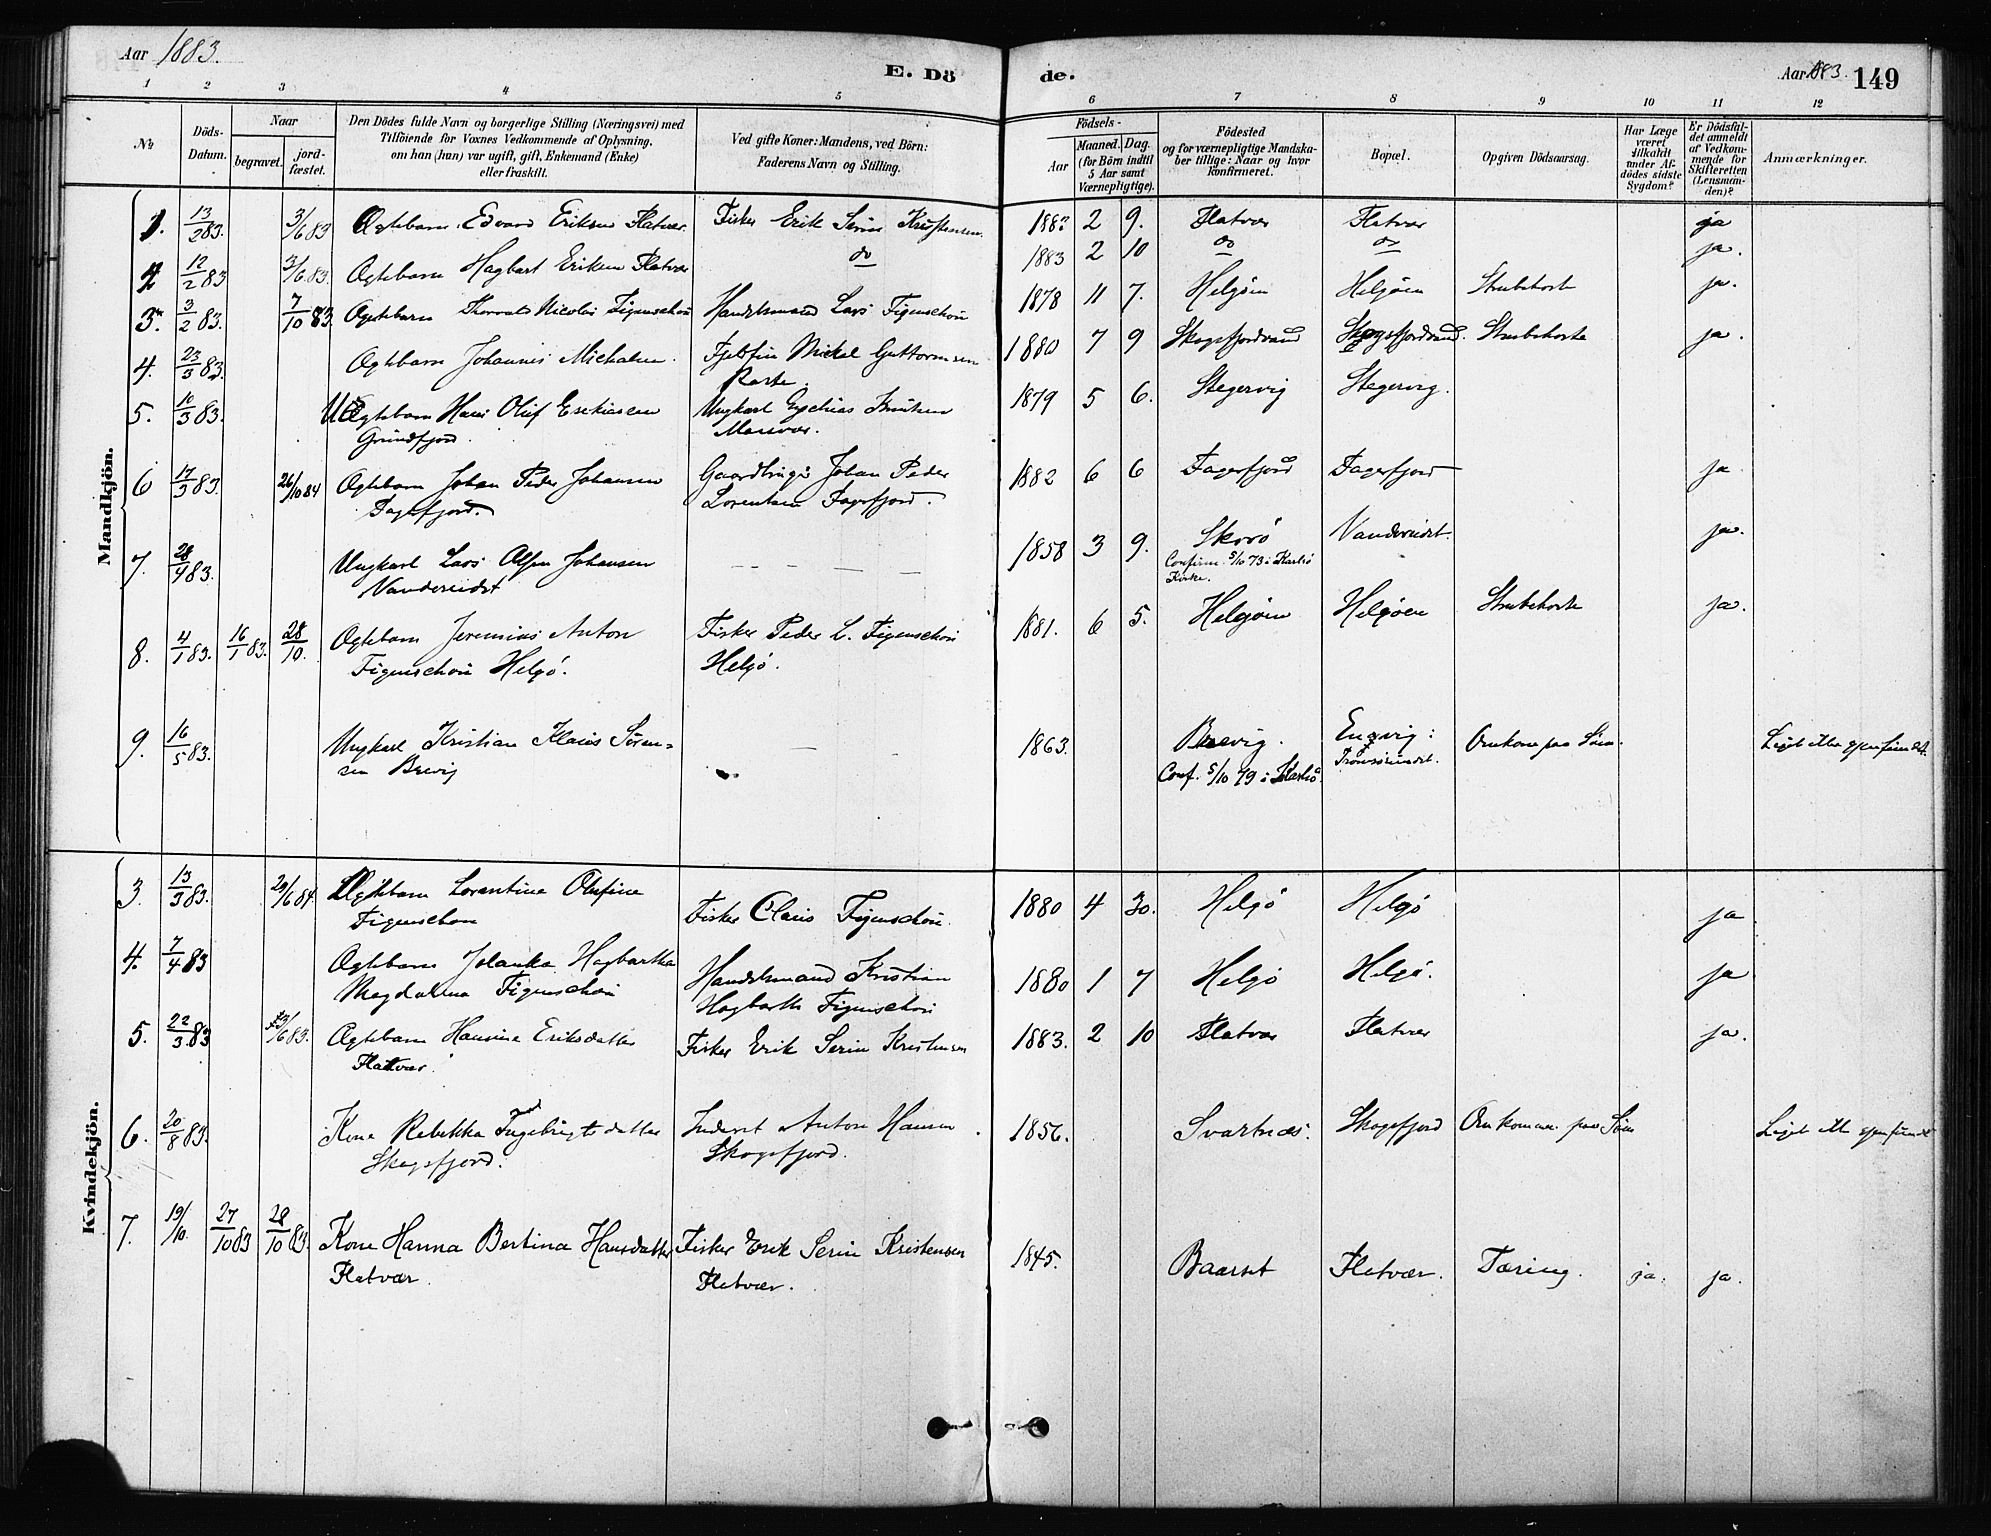 Aar 1883.
E. Dö
de.
Aar 1883.
149
1 2 3 4 5 6 7 8 9 10 11 12
No
Döds-Datum.
Naar
begravet.
jord-fæstet.
Den Dödes fulde Navn og borgerlige Stilling (Næringsvei) med
Tilföiende for Voxnes Vedkommende af Oplysning,
om han (hun) var ugift, gift, Enkemand (Enke)
eller fraskilt.
Ved gifte Koner: Mandens, ved Börn:
Faderens Navn og Stilling.
Födsels-
Aar
Maaned. Dag.
(for Börn indtil
5 Aar samt
Værnepligtige).
Födested
og for værnepligtige Mandska-
ber tillige: Naar og hvor
konfirmeret.
Bopæl.
Opgiven Dödsaarsag.
Har Læge
været
tilkaldt
under Af-
dödes sidste
Sygdom?
Er Dödsfal-
det anmeldt
af Vedkom-
mende for
Skifteretten
(Lensman-
den)?
Anmærkninger.
Mandkjön.
1. 13/2 83. 3/6 83 Ægtebarn Edvard Eriksen Flatvær. Fisker Erik Serin Kristensen. 2 9. Flatvær Flatvær ja
2 12/2 83 3/6 83. Ægtebarn Hagbart Eriksen Flatvær do 1883 2 10 do do ja.
3. 3/2 83. 7/10 83. Ægtebarn Thorvald Nicolai Figenschou Handelsmand Lars Figenschou 1878 11 7. Helgöen Helgöen Strubehoste ja.
4. 23/3 83. Ægtebarn Johannes Michalsen. Fjeldfin Mickel Guttormsen 1880 7 9 Skogsfjordvand Skogsfjordvand. Strubehoste ja.
5. 10/3 83. Uægtebarn Hans Oluf Esekiassen Ungkarl 1879 5 6. Stegervig Stegervig.
Grundfjord.
6 17/3 83. 26/10 84 Ægtebarn Johan Peder Johansen Gaardbruger Johan Peder 1882 6 6 Dagerfjord Dagerfjord ja
Lorentsen
7. 28/4 83. Ungkarl Lars Olsen Johansen — — — — 1858 3 9. Skorö Vandereidet. ja.
Vandereidet Confirm. 5/10 73 i Karlsö
Kirke.
8. 4/1 83. 16/1 83. 28/10. Ægtebarn Jeremias Anton Fisker Peder L. Figenschou 1881. 6 5. Helgöen Helgöen Strubehoste ja.
Figenschou Helgö. Helgö.
9. 16/5 83. Ungkarl Kristian Klaus Sören= — 1863. Brevig. Engvig: Omkom paa Söen. Liget ikke gjenfundet.
sen Brevig Conf. 5/10 79 i Karlsö. Tromsösundet.
Kvindekjön.
3. 13/3 83. 29/6 84. Ægtebarn Lorentine Olufine Fisker Claus Figenschou. 1880 4 30. Helgö Helgö ja
Figenschou
4. 7/4 83 Ægtebarn Jolanka Hagbartha Handelsmand Kristian 1880 1 7 Helgö Helgö. ja
Magdalena Figenschou Hagbarth Figenschou
5. 22/3 83 3/6 83. Ægtebarn Hansine Eriksdatter Fisker Erik Serin Kristensen 1883. 2 10 Flatvær Flatvær ja.
Flatvær.
6. 20/8 83. Kone Rebekka Ingebrigtsdatter Inderst Anton Hansen 1856. Svartnæs. Skogsfjord Omkommen paa Söen Liget ikke gjenfundet
Skogsfjord. Skogsfjord.
7. 19/10. 27/10 83 28/10 83. Kone Hanna Bertina Hansdatter Fisker Erik Serin Kristensen 1845. Baarset Flatvær. Tæring. ja. ja.
Flatvær. Flatvær.